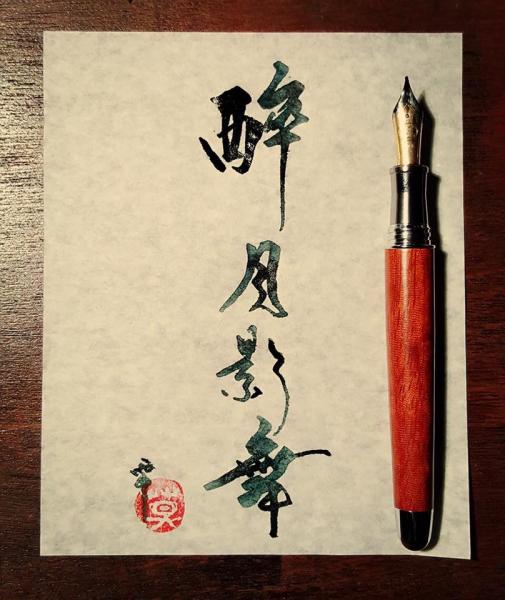 醉月影舞